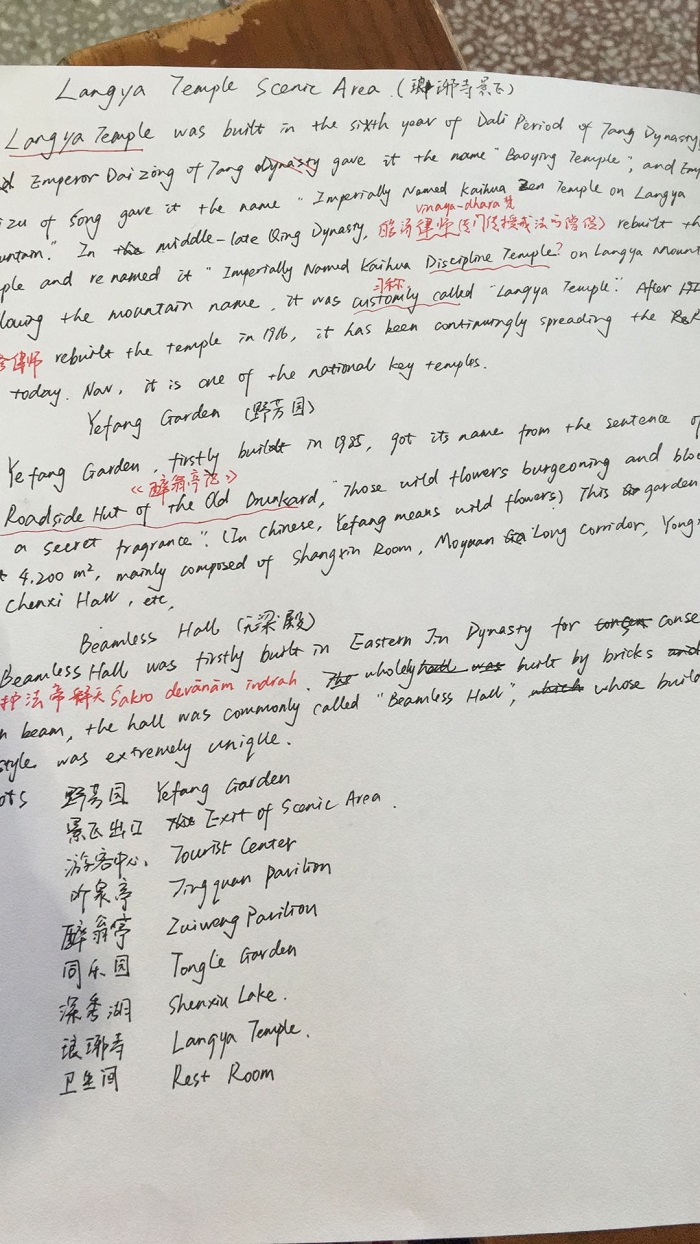 Langya Temple Scenic Area.(琅琊寺景区)
Langya Temple was built in the sixth year of Dali Period of Tang Dynasty,
Emperor Daizong of Tang Dynasty gave it the name "Baoying Temple", and Em
izu of Song gave it the name "Imperially Named Kaihua Zen Temple on Langya
vinaya-dhara 梵
untain." In the middle-late Qing Dynasty, 律师(专门传授戒法 僧侣) rebuilt th
ple and renamed it "Imperially Named Kaihua Discipline Temple? on Langya Mount
习称
lowing the mountain name, it was customly called "Langya Temple". After
律师 rebuilt the temple in 1906, it has been continuingly spreading the
today. Now, it is one of the national key temples.
Yefang Garden (野芳园)
Yefang Garden, firstly buildt in 1985, got its name from the sentence of
《醉翁亭记》
Roadside Hut of the Old Drunkard, "Those wild flowers burgeoning and blo
a secret fragrance". (In Chinese, Yefang means wild flowers) This garden
4,200 m², mainly composed of Shangxin Room, Moyuan Long Corridor, Yong
Chenxi Hall, etc,
Beamless Hall (无梁殿)
Beamless Hall was firstly built in Eastern Jin Dynasty for conse
护法帝释天 Śakro devānām indraḥ. The wholely hall was built by bricks and
n beam, the hall was commonly called "Beamless Hall", which whose build
style was extremely unique.
ots 野芳园 Yefang Garden
景区出口 Exit of Scenic Area.
游客中心 Tourist Center
听泉亭 Tingquan pavilion
醉翁亭 Zuiweng Pavilion
同乐园 Tongle Garden
深秀湖 Shenxiu Lake.
琅琊寺 Langya Temple.
卫生间 Rest Room